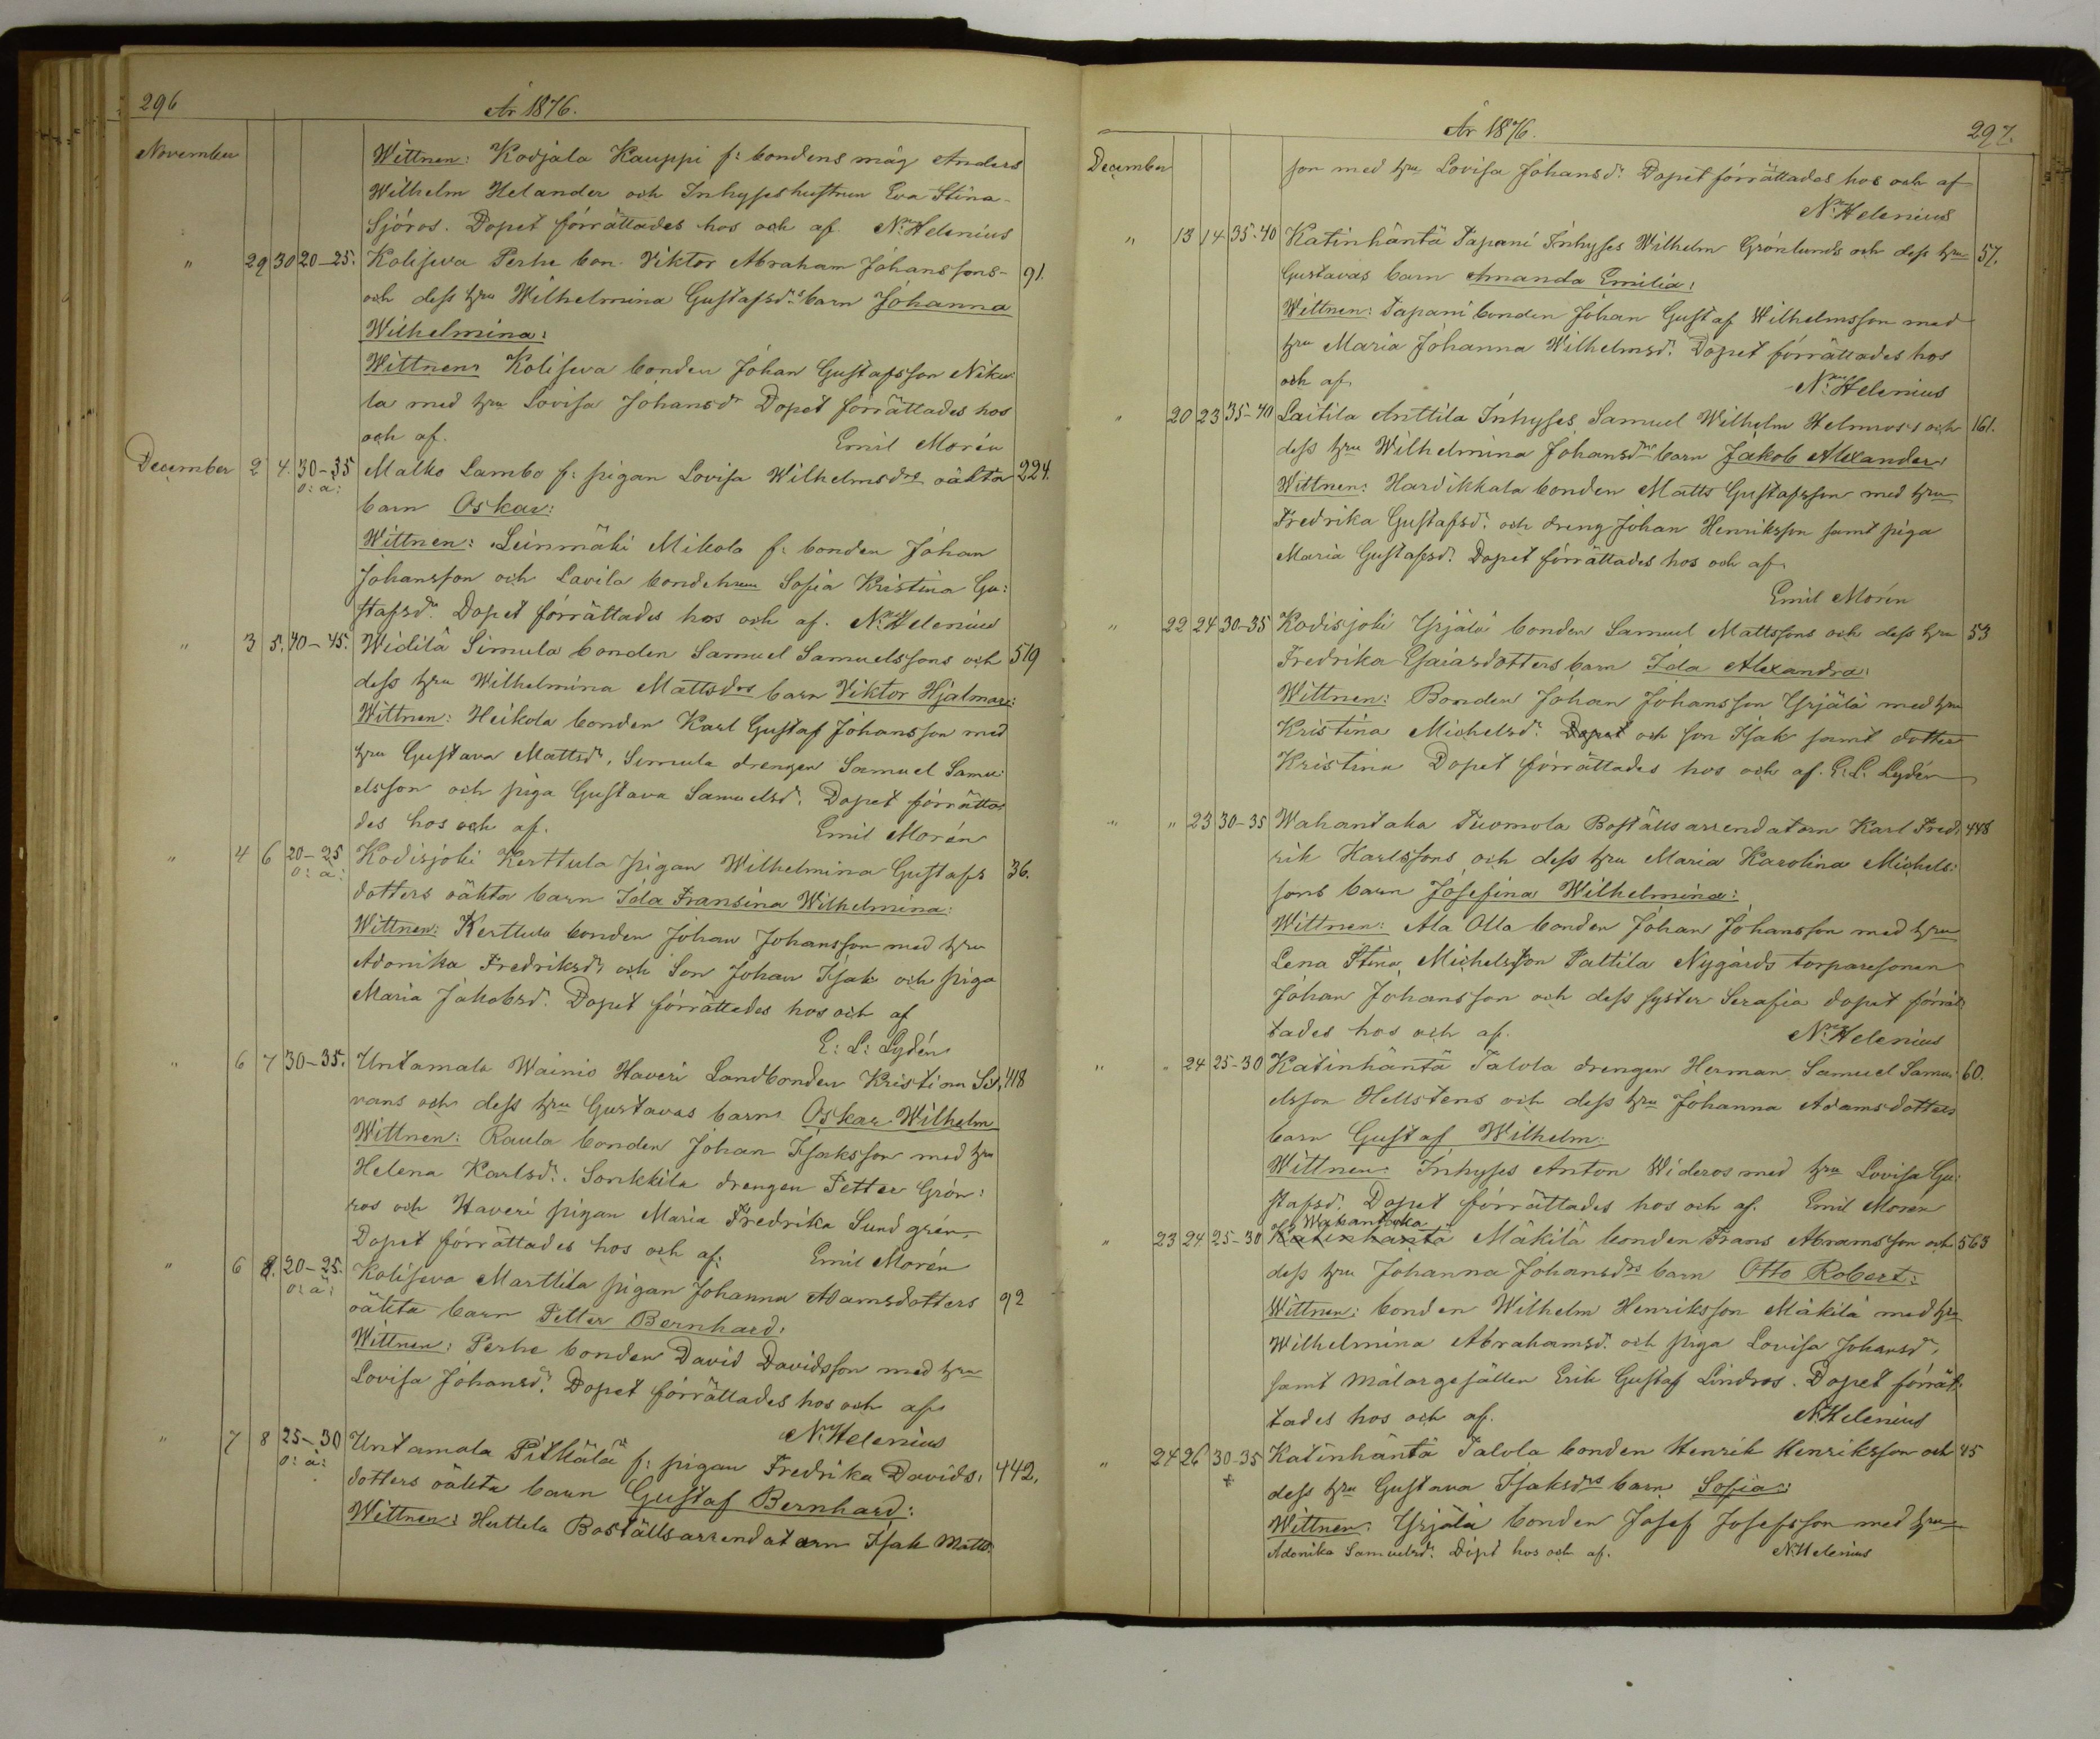 296
År 1876.
November
Wittnen: Kodjala Kauppi f: bondens måg Anders
Wilhelm Helander och Inhyseshustrun Eva Stina
Sjöros. Dopet förrättades hos och af N. Helenius
" 29 30 20-25. Koliseva Perhe bon. Viktor Abraham Johanssons 91.
och dess hru Wilhelmina Gustafsd:s barn Johanna
Wilhelmina:
Wittnen: Koliseva bonden Johan Gustafsson Niku:
la med hru Lovisa Johansdr Dopet förrättades hos
och af. Emil Morén
December 2 4. 30-35 Malko Lambo f: pigan Lovisa Wilhelmsdrs oäkta 224.
o: ä:
barn Oskar:
Wittnen: Leinmäki Mikola f: bonden Johan
Johansson och Lavila bondehrun Sofia Kristina Gu:
stafsdr. Dopet förrättades hos och af. N. Helenius
" 3 5. 40-45. Widilä Simula bonden Samuel Samuelssons och 519
dess hru Wilhelmina Mattsdrs barn Viktor Hjalmar:
Wittnen: Heikola bonden Karl Gustaf Johansson med
hru Gustava Mattsdr, Simula drengen Samuel Samu:
elsson och piga Gustava Samuelsd: Dopet förrätta:
des hos och af. Emil Morén
" 4 6 20-25 Kodisjoki Kerttula pigan Wilhelmina Gustafs 36.
o: ä:
dotters oäkta barn Ida Fransina Wilhelmina:
Wittnen: Kerttula bonden Johan Johansson med hru
Adonika Fredriksdr och Son Johan Isak och piga
Maria Jakobsd: Dopet förrättades hos och af
E: L: Lydén
" 6 7 30-35. Untamala Wainio Haveri Landbonden Kristian Sil, 418
vans och dess hru Gustavas barn Oskar Wilhelm
Wittnen: Raula bonden Johan Isaksson med hru
Helena Karlsd:. Sonkkila drengen Petter Grön:
ros och Haveri pigan Maria Fredrika Sundgrén.
Dopet förrättades hos och af: Emil Morén
" 6 8. 20-25. Koliseva Marttila pigan Johanna Adamsdotters 92
o: ä:
oäkta barn Petter Bernhard:
Wittnen: Perhe bonden David Davidsson med hru
Lovisa Johansd: Dopet förrättades hos och af.
N. Helenius
" 7 8 25-30 Untamala Pitkälä f: pigan Fredrika Davids: 442.
o: ä:
dotters oäkta barn Gustaf Bernhard:
Wittnen: Huttela Boställsarrendatorn Isak Matts:
År 1876. 297.
December
son med hru Lovisa Johansd: Dopet förrättades hos och af
N. Helenius
" 13 14 35-40 Katinhäntä Tapani Inhyses Wilhelm Grönlunds och dess hru 57.
Gustavas barn Amanda Emilia:
Wittnen: Tapani bonden Johan Gustaf Wilhelmsson med
hru Maria Johanna Wilhelmsd: Dopet förrättades hos
och af. N. Helenius
" 20 23 35-40 Laitila Anttila Inhyses Samuel Wilhelm Helmros's och 161.
dess hru Wilhelmina Johansdrs barn Jakob Alexander:
Wittnen: Hardikkala bonden Matts Gustafsson med hru
Fredrika Gustafsd: och dreng Johan Henriksson samt piga
Maria Gustafsd: Dopet förrättades hos och af.
Emil Morén
" 22 24 30-35 Kodisjoki Yrjälä bonden Samuel Mattssons och dess hru 53
Fredrika Esaiasdotters barn Ida Alexandra:
Wittnen: Bonden Johan Johansson Yrjälä med hru
Kristina Michelsd: Dopet och son Isak samt dotter
Kristina Dopet förrättades hos och af. E. L. Lydén
" " 23 30-35 Wahantaka Tuomola Boställsarrendatorn Karl Fred: 448
rik Karlssons och dess hru Maria Karolina Michels:
sons barn Josefina Wilhelmina:
Wittnen: Ala Olla bonden Johan Johansson med hru
Lena Stina Michelsson Pattila Nygårds torparesonen
Johan Johansson och dess syster Serafia dopet förrät:
tades hos och af. N. Helenius
" " 24 25-30 Katinhäntä Talola drengen Herman Samuel Samu: 60.
elsson Hellstens och dess hru Johanna Adamsdotters
barn Gustaf Wilhelm:
Wittnen: Inhyses Anton Wideros med hru Lovisa Gu:
stafsd: Dopet förrättades hos och af. Emil Morén
Wahantaka
" 23 24 25-30 Katinhäntä Mäkilä bonden Frans Abramsson och 563
dess hru Johanna Johansdrs barn Otto Robert:
Wittnen: bonden Wilhelm Henriksson Mäkilä med hru
Wilhelmina Abrahamsd: och piga Lovisa Johansd:,
samt Målargesällen Erik Gustaf Lindros. Dopet förrät:
tades hos och af. N. Helenius
" 24 26 30-35 Katinhäntä Talola bonden Henrik Henriksson och 45
dess hru Gustava Isaksdrs barn Sofia:
Wittnen: Yrjälä bonden Josef Josefsson med hru
Adonika Samuelsd: Döpt hos och af. N. Helenius